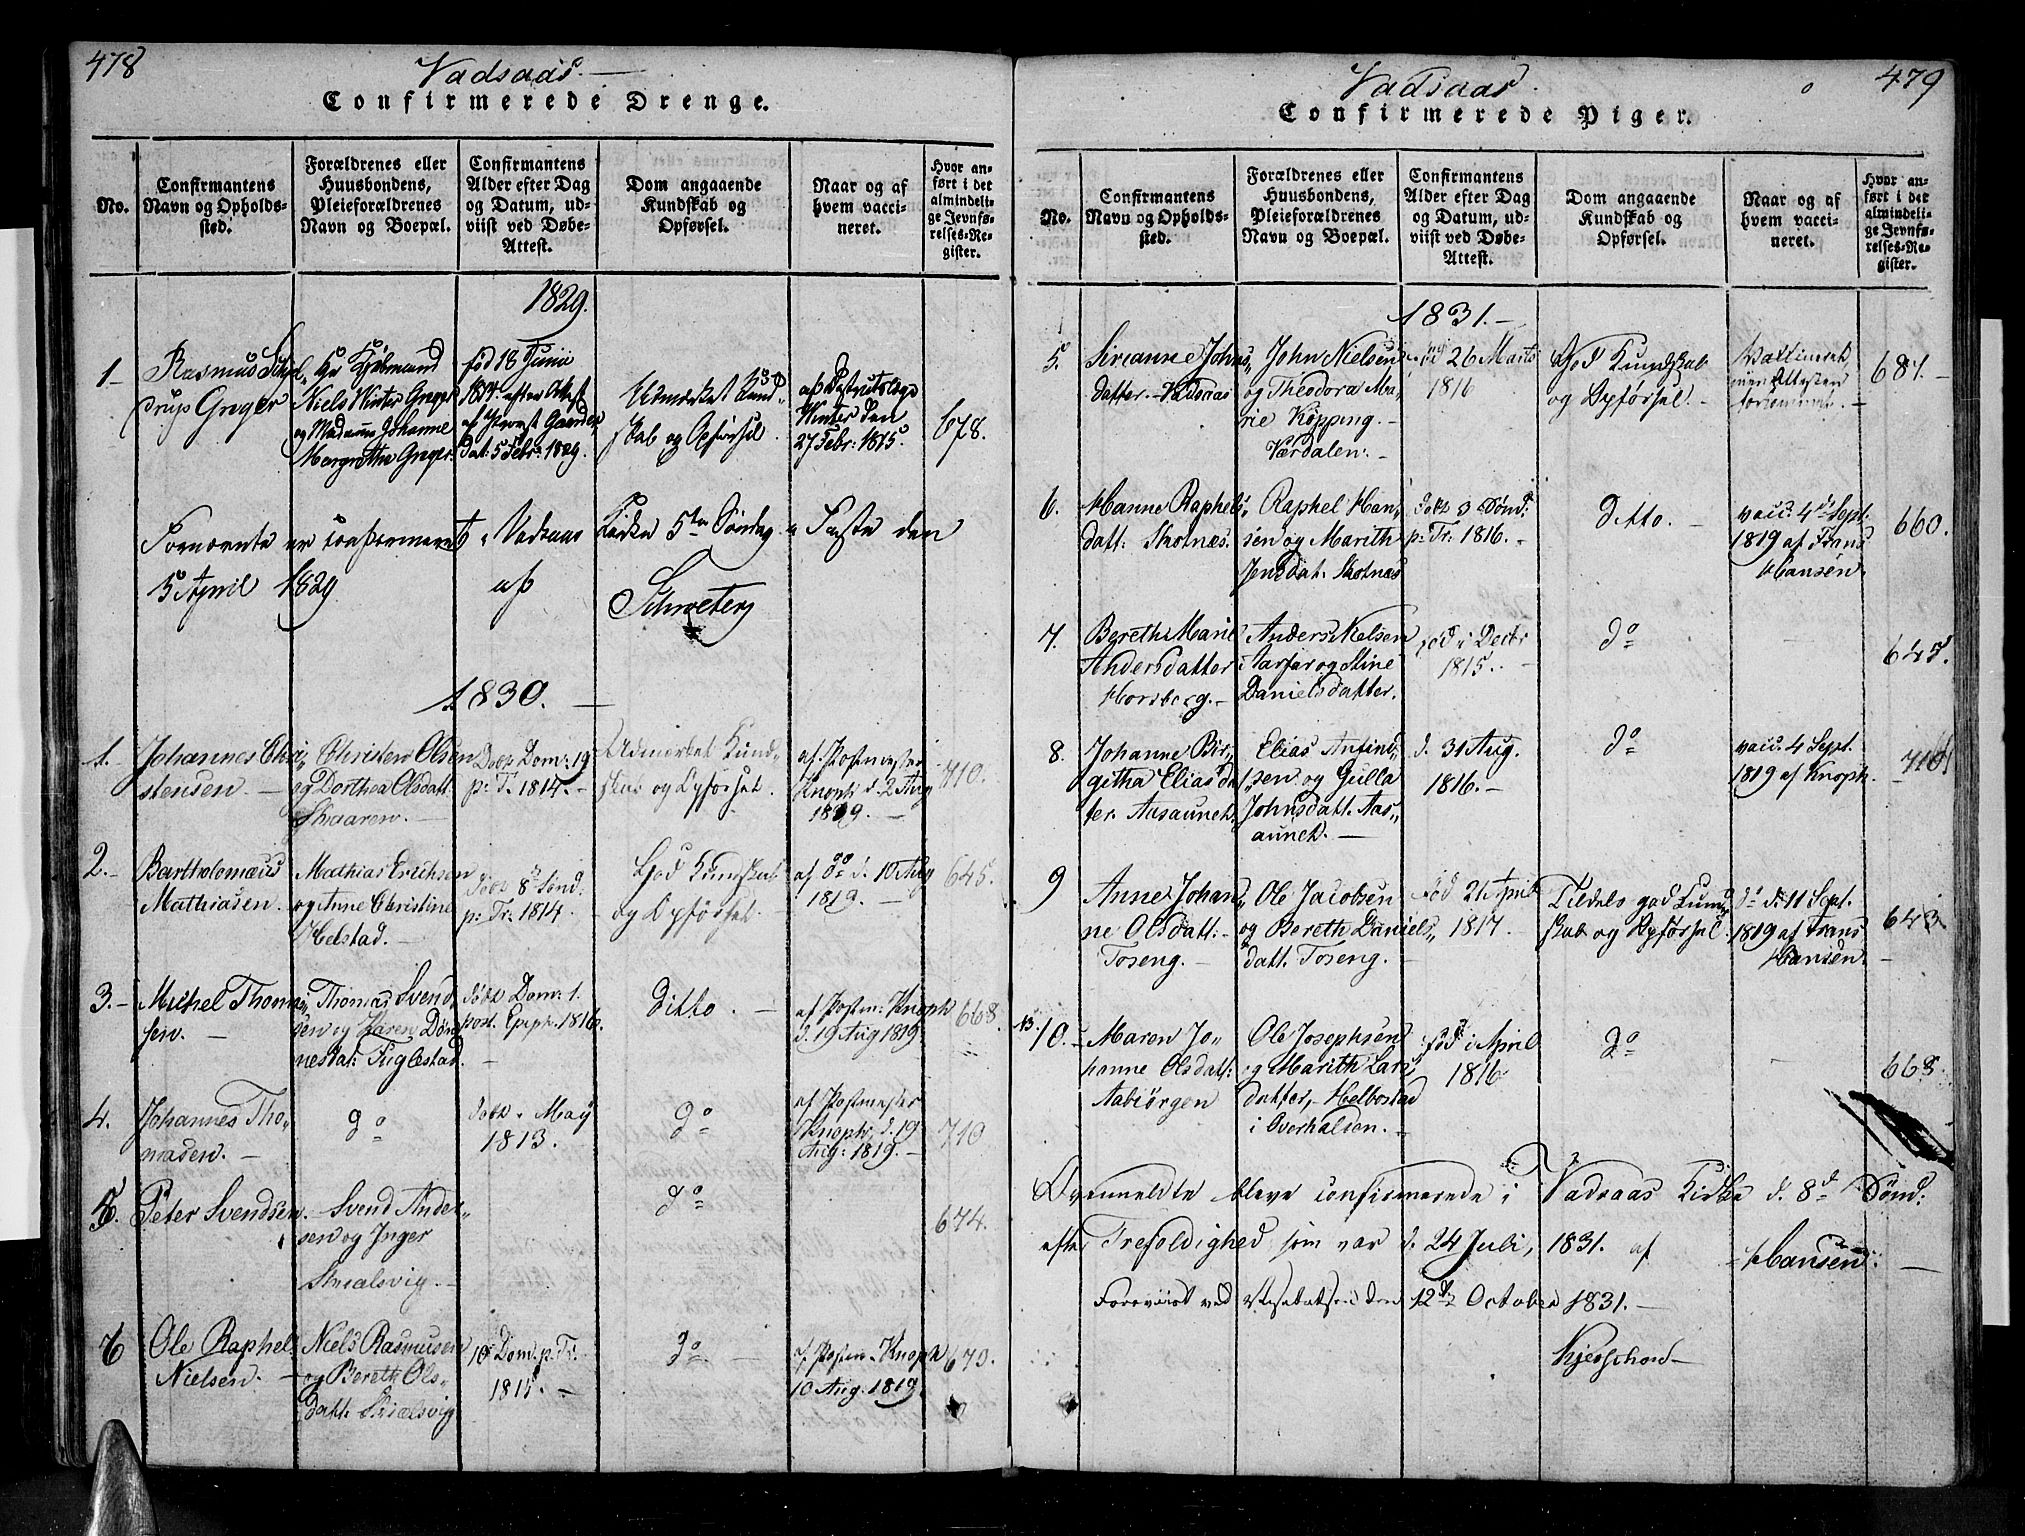 478
Vadsaas.
Confirmerede Drenge.
No.
Confirmantens
Navn og Opholds-
sted.
Forældrenes eller
Huusbondens,
Pleieforældrenes
Navn og Boepæl.
Confirmantens
Alder efter Dag
og Datum, ud-
viist ved Døbe-
Attest.
Dom angaaende
Kundskab og
Opførsel.
Naar og af
hvem vacci-
neret.
Hvor an-
ført i det
almindeli-
ge Jevnfø-
relses-Re-
gister.
1829.
1
Rasmus
drup Greger
Kjøbmand
Niels Winter Greger
og Madame Johanne
Margrethe Greger.
fød 18 Junii
1814. efter Attest
af Provst
dat: 5 Febr: 1829.
Udmerket Kund„
skab og Opførsel
Winter den
27 Febr: 1815.
678.
Fornevnte er confirmeret i Vadsaas Kirke 5te Søndag i Faste den
5 April 1829 af Schrøeter
1830.
1.
Johannes Chri„
stensen.
Christen Olsen
og Dorthea Olsdatt:
Skaaren.
Døbt Dom: 19
p: T. 1814.
Udmerket Kund„
skab og Opførsel.
af Postmester
Knoph d. 2 Aug
1819.
710.
2.
Bartholomæus
Mathiasen.
Mathias Erichsen
og Anne Christine
Helstad.
Døbt 8de Sønd
p: Tr: 1814.
God Kundskab
og Opførsel.
af do d. 10 Aug
1819.
645.
3.
Michel Thoma„
sen.
Thomas Svend„
sen og Karen Dør„
nesdat: Fuglestad.
Døbt Dom: 1.
post. Epiph. 1816.
Ditto.
af Postm: Knoph
d. 19 Aug 1819
668.
4.
Johannes Tho„
masen.
do
Døbt i May
1813.
do
af Postmester
Knoph, d. 19
Aug: 1819.
710
5.
Peter Svendsen.
Svend Ander„
sen og Inger
Skialsvig.
do
674.
6
Ole Raphel
Nielsen.
Niels Rasmusen
og Bereth Ols„
datt: Skielsvig
10 Dom. p. Tr:
1815.
do
af Postm. Knoph
10 Aug. 1819
679.
479
Vadsaas
Confirmerede Piger.
No.
Confirmantens
Navn og Opholds-
sted.
Forældrenes eller
Huusbondens,
Pleieforældrenes
Navn og Boepæl.
Confirmantens
Alder efter Dag
og Datum, ud-
viist ved Døbe-
Attest.
Dom angaaende
Kundskab og
Opførsel.
Naar og af
hvem vacci-
neret.
Hvor an-
ført i det
almindeli-
ge Jevnfø-
relses-Re-
gister.
1831.
5.
Sirianne Johns„
datter. Vadsaas
John Nielsen
og Theodora Ma„
rie Köpping.
Værdalen.
26 Marts
1816
God Kundskab
og Opførsel.
Vaccineret,
men Attesten
forkommet.
681.
6.
Hanne Raphels„
datt: Skotnæs.
Raphel Han„
sen og Marith
Jensdat. Skotnæs
Døbt 3 Sønd:
p: Tr: 1816.
Ditto.
vacc. 4de Sept.
1819 af Frans
Hansen.
660.
7.
Bereth Marie
Andersdatter
Horsberg.
Anders Nielsen
Aarfar og Stine
Danielsdatter.
fød i Decbr
1815.
do
645.
8.
Johanne Bir„
githa Elias dat
ter. Aasaunet.
Elias Anfind„
sen og Gulla
Johnsdatt. Aas„
aunet.
d. 31 Aug.
1816.
do
vacc. 4 Sept.
1819 af Knoph.
710
9
Anne Johan„
ne Olsdatt:
Toseng.
Ole Jacobsen
og Bereth Daniels„
datt. Toseng.
Fød 21 April
1817.
Tildels god Kund„
skab og Opførsel.
do d. 11 Sept.
1819 af Frans
Hansen.
643
10.
Maren Jo„
hanne Olsdatt:
Aabiörgen
Ole Josephsen
og Marith Lars„
datter, Helbostad
i Overhalden.
fød i April
1816
do
668.
Ovenmeldte bleve confirmerede i Vadsaas Kirke d. 8de Sønd:
efter Trefoldighed som var d. 24 Juli, 1831. af Hansen.
Foreviist ved Visitatsen den 12te October 1831.